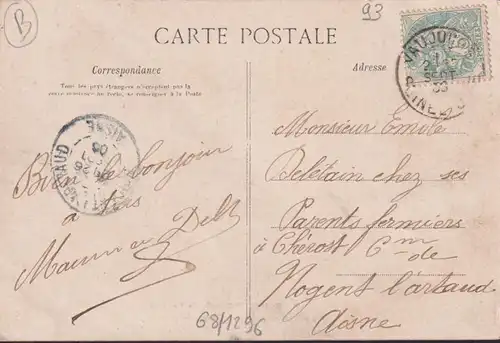 B
93
CARTE POSTALE
Correspondance
Tous les pays étrangers n'acceptent pas la
correspondance au recto, se renseigner à la Poste
Adresse
VAUJOURS
SEPT
AISNE
Bien le bonjour
à
Monsieur Emile
Peletain chez ses
Parents fermiers
à Chérost Cm de
Nogent l'artaud
Aisne
68/1296